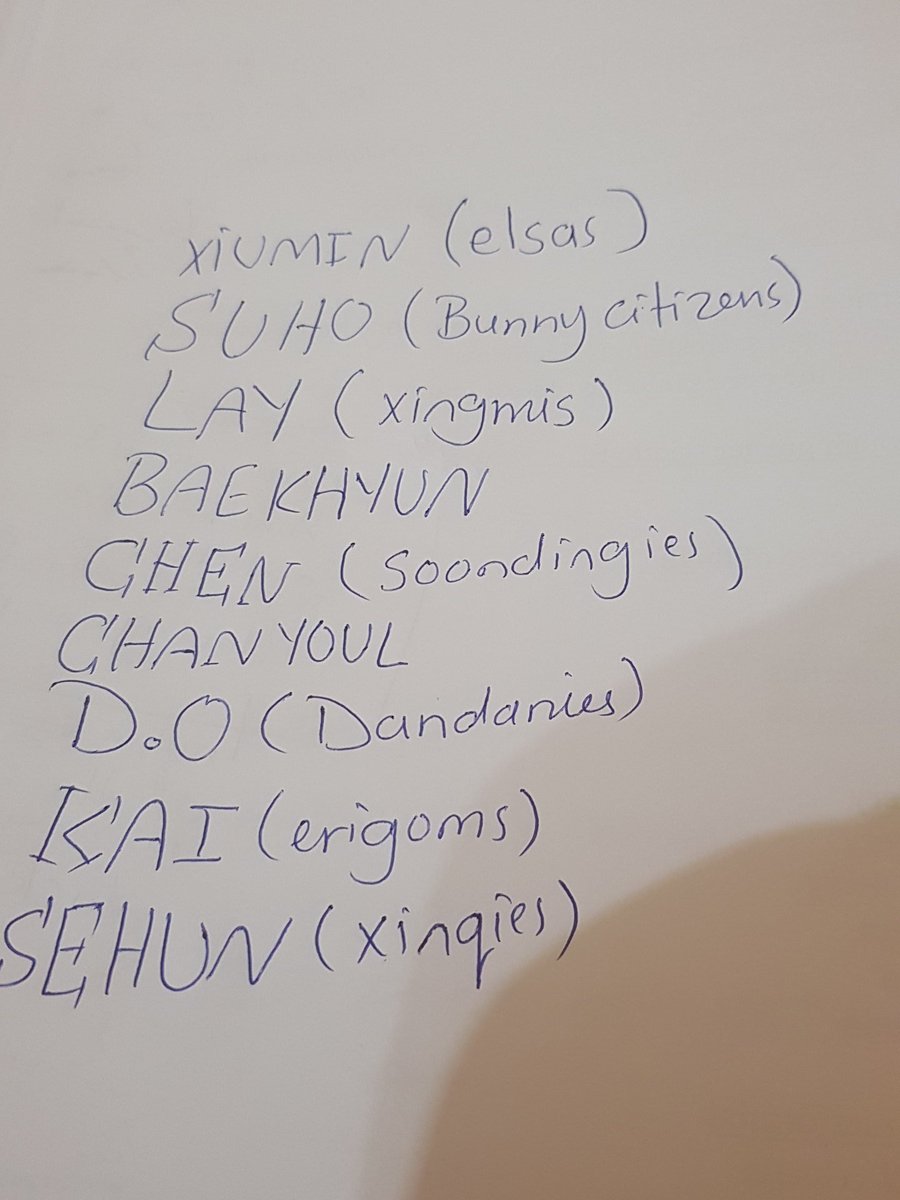 XiUMIN (elsas)
SUHO (Bunny citizens)
LAY (xingmis)
BAEKHYUN
CHEN (Soondingies)
CHANYOUL
D.O (Dandanies)
KAI (erigoms)
SEHUN (xinqies)